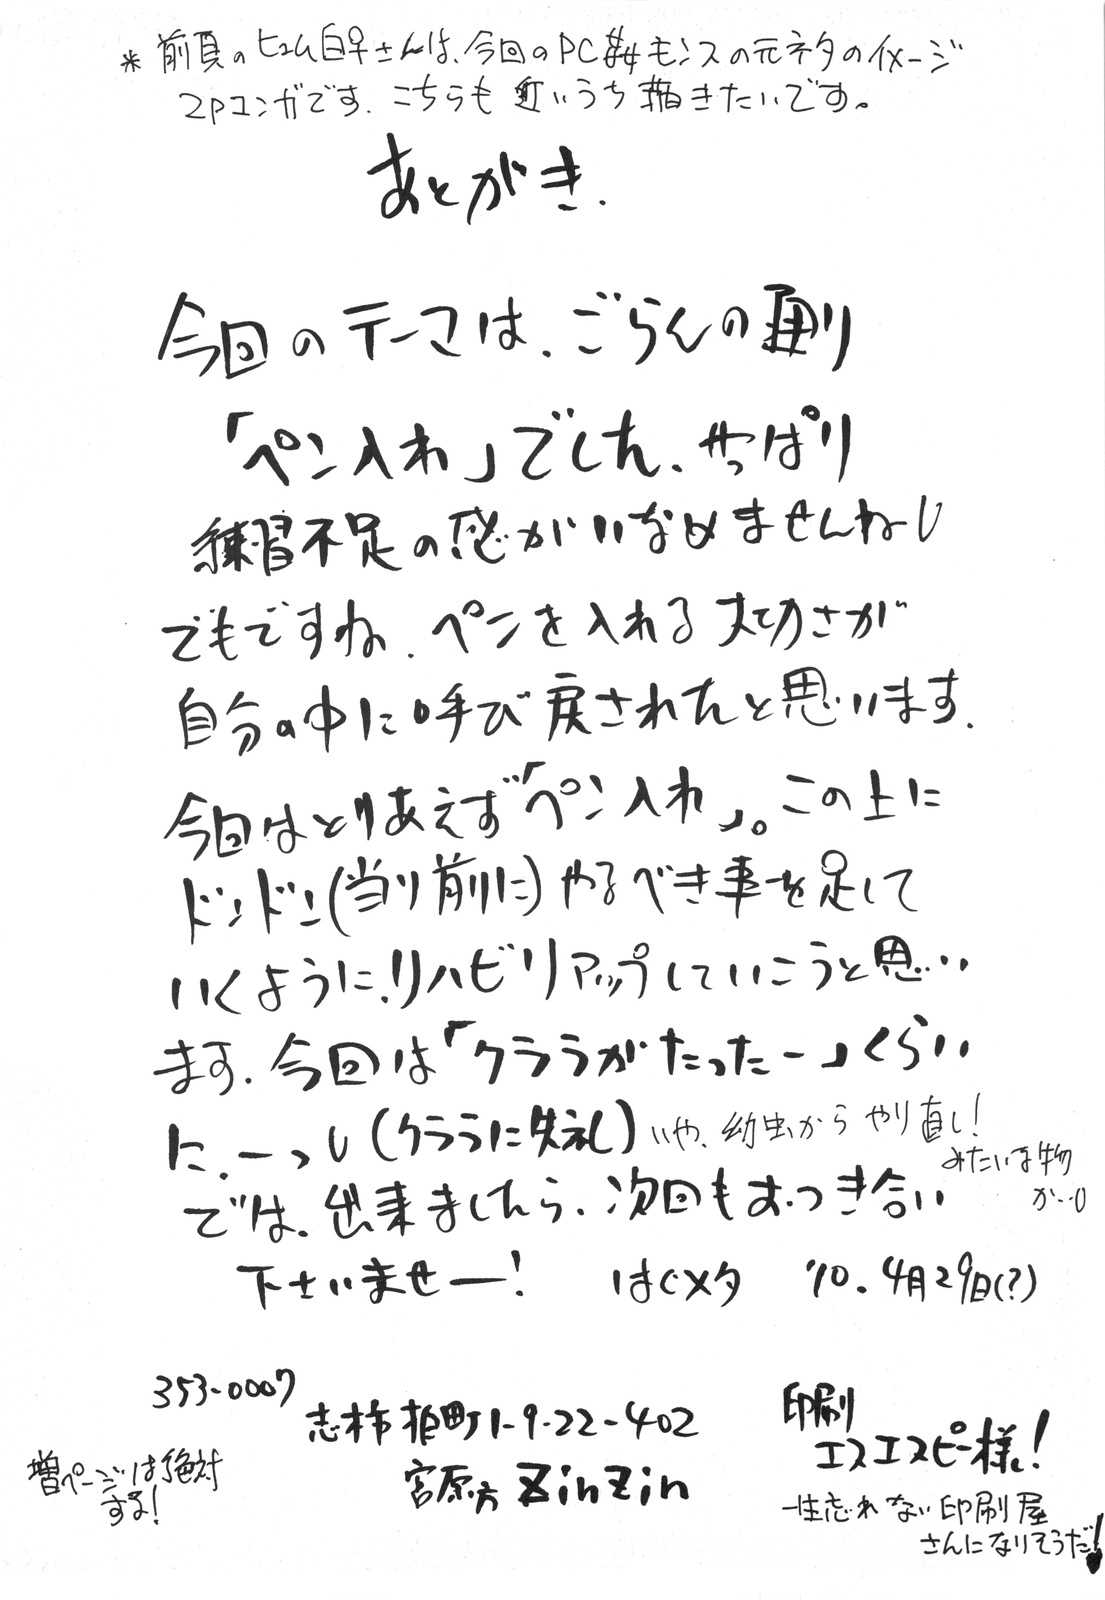 *前頁のヒュム白♀さんは、今回のPC モンスの元ネタのイメージ
2Pコンガです。こちらも近いうち描きたいです。
あとがき.
今回のテーマは、ごらんの通り
「ペン入れ」でした、やっぱり
練習不足の感がいなめませんねーし
でもですね、ペンを入れる大切さが
自分の中に呼び戻されたと思います.
今回はとりあえず「ペン入れ」。この上に
ドンドン(当り前に)やるべき事を足して
いくように、リハビリアップしていこうと思い
ます.今回は「クララがたったー」くらい
に.ーっし(クララに失礼)いや、幼虫からやり直し!
みたいな物
か…
では、出来ましたら、次回もおつき合い
下さいませー! はぐメタ '10.4月29日(?)
353-0007
志木市柏町1-9-22-402
宮原方 ZinZin
増ページは絶対
する!
印刷
エスエスピー様!
一生忘れない印刷屋
さんになりそうだ!